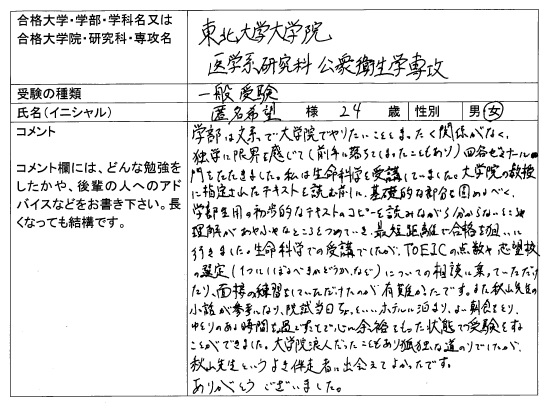 合格大学・学部・学科名又は
合格大学院・研究科・専攻名
東北大学大学院
医学系研究科 公衆衛生学専攻
受験の種類
一般受験
氏名(イニシャル)
匿名希望 様 24 歳 性別 男・女
コメント
コメント欄には、どんな勉強を
したかや、後輩の人へのアド
バイスなどをお書き下さい。長
くなっても結構です。
学部は文系で大学院でやりたいこととまったく関係がなく、
独学に限界を感じて(前年に落ちてしまったこともあり)四谷ゼミナール
門をたたきました。私は生命科学を受講していました。大学院の教授
に指定されたテキストを読む前に、基礎的な部分を固めるべく、
学部生用の初歩的なテキストのコピーを読みながら分からないことや
理解があやふやなところをつめていき、最短距離で合格を狙いに
行きました。生命科学での受講でしたが、TOEICの点数や志望校
の選定(1つにしぼるべきかどうか、など)についての相談に乗っていただけ
たり、面接の練習をしていただけたのが有難かったです。また秋山先生の
小話が参考になり、院試当日ちょっといいホテルに泊まり、よい朝食をとり、
ゆとりのある時間を過ごすことで心に余裕をもった状態で受験をする
ことができました。大学院浪人だったこともあり孤独な道のりでしたが、
秋山先生というよき伴走者に出会えてよかったです。
ありがとうございました。